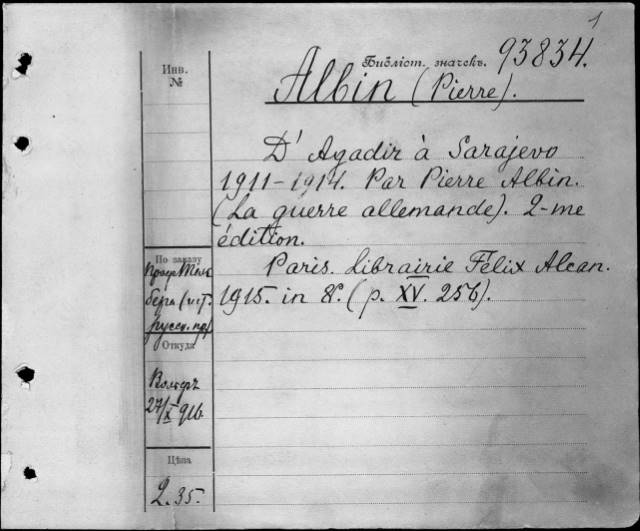 1
Библіот. значекъ. 93834.
Albin (Pierre).
Инв.
№
D'Agadir à Sarajevo
1911–1914. Par Pierre Albin.
(La guerre allemande). 2-me
édition.
Paris. Librairie Félix Alcan.
1915. in 8º. (p. XV. 256).
По заказу
русск. пр)
Откуда
Вольфъ
27/X 916
Цѣна
2.35.